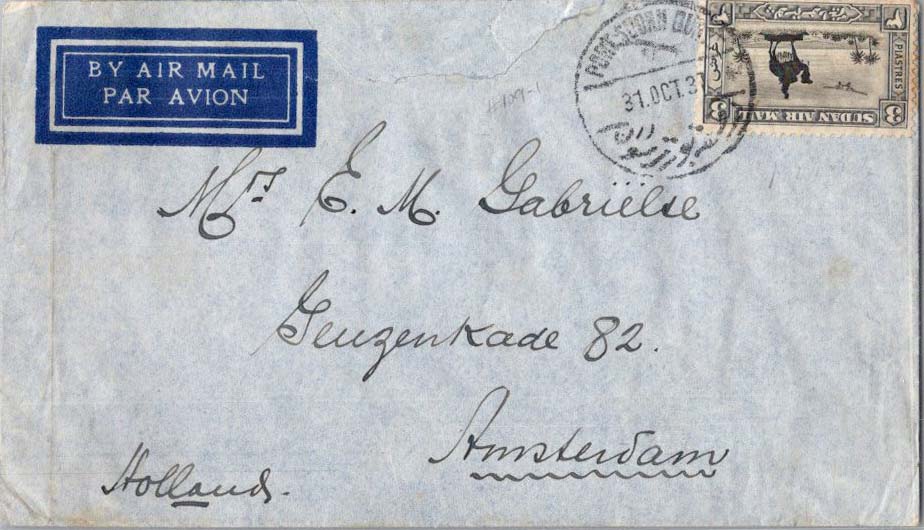 BY AIR MAIL
PAR AVION
PORT SUDAN
31.OCT.3
PIASTRES
3
SUDAN AIR MAIL
Mrs E. M. Gabriëlse
Geuzenkade 82.
Amsterdam
Holland.